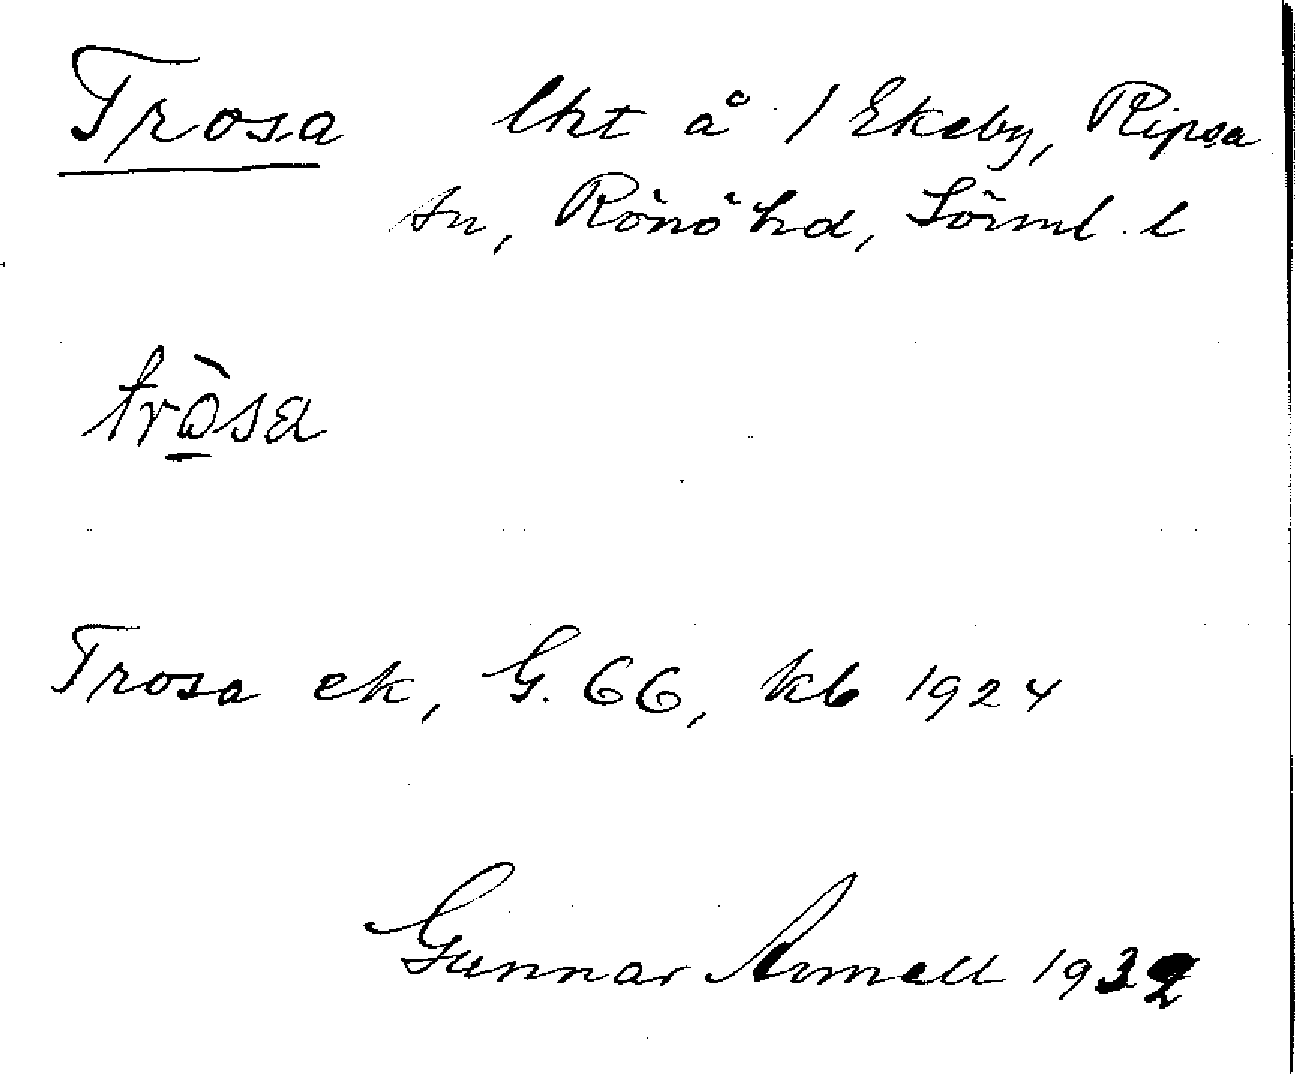 Trosa lht å 1 Ekeby, Ripsa
sn, Rönö hd, Sörml. l
tròsa
Trosa ek, G. 66, kb 1924
Gunnar Armell 1932